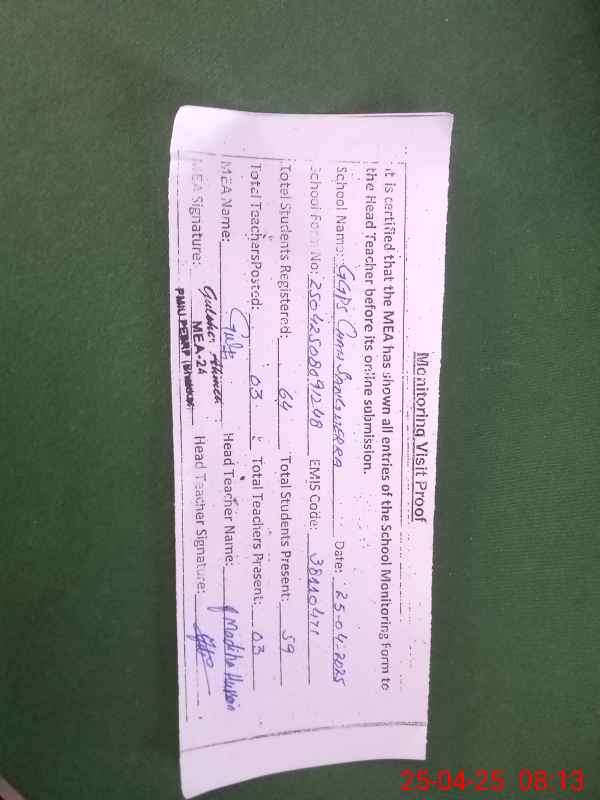 Monitoring Visit Proof
It is certified that the MEA has shown all entries of the School Monitoring Form to
the Head Teacher before its online submission.
School Name: GGPS CHAH SANGHERRA Date: 25-04-2025
School Form No: 25042508091248 EMIS Code: 38110471
Totel Students Registered: 64 Total Students Present: 59
Total Teachers Posted: 03 Total Teachers Present: 03
MEA Name: Head Teacher Name: Madiha Hussain
Gulsher Ahmed
MEA Signature: MEA-24 Head Teacher Signature:
PMIU PESRP
25-04-25 08:13